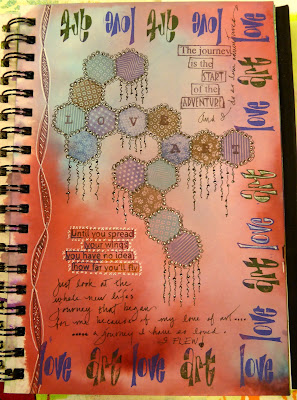 art love art love art
The journey
is the
START
of the
ADVENTURE
And
LOVE
ART
Until you spread
your wings
you have no idea
how far you'll fly
Just look at the
whole new life's
Journey that began
for me because of my love of art....
..... a journey I have so loved.
FLEW!
love art love art love art love art love
love art love art love